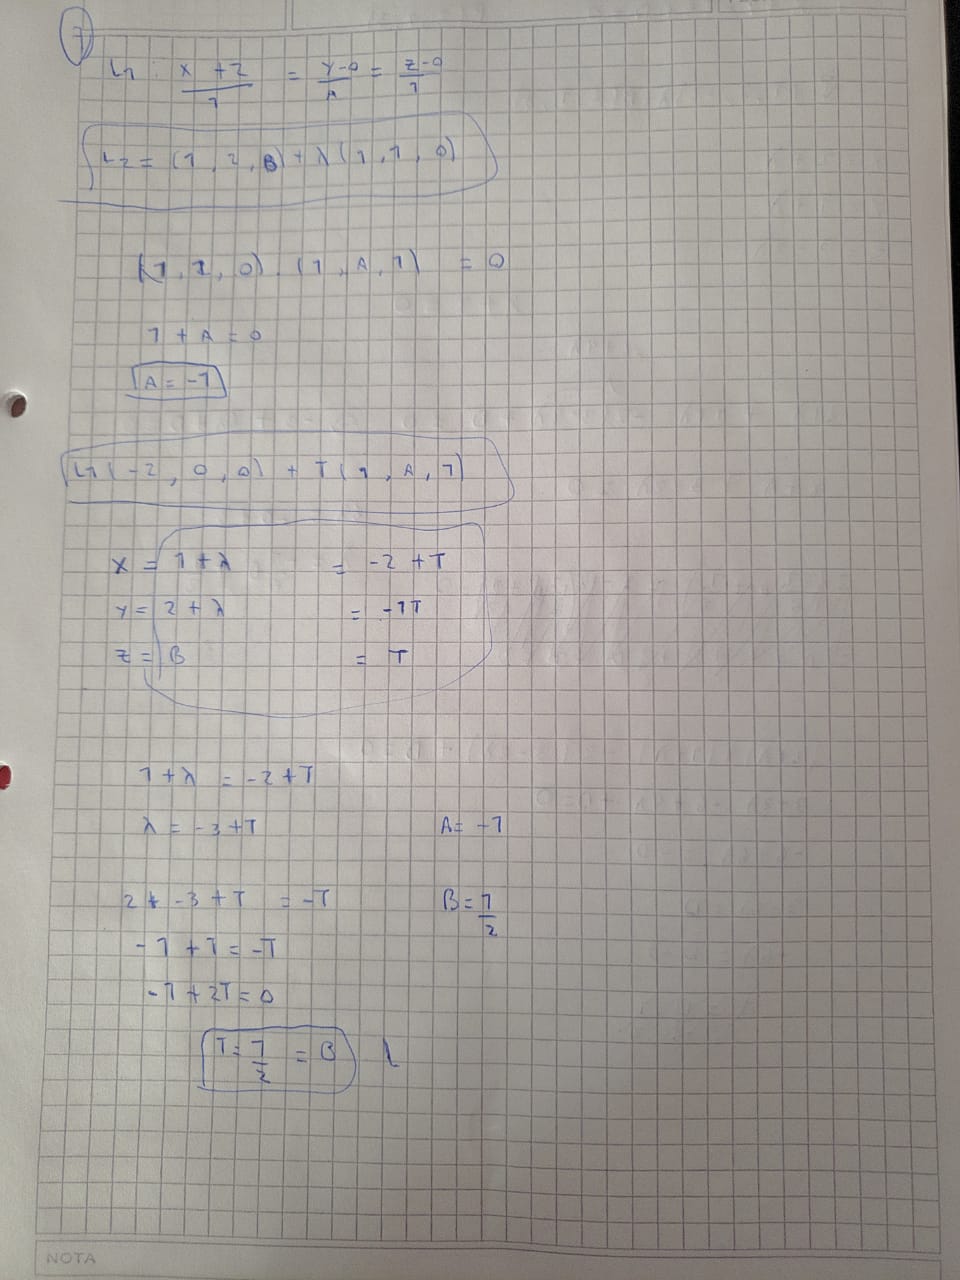 1
L1 : x + 2 / 1 = y-0 / A = z-0 / 1
L2 = (1, 2, B) + λ(1, 1, 0)
(1, 1, 0) . (1, A, 1) = 0
1 + A = 0
A = -1
L1 (-2, 0, 0) + T(1, A, 1)
x = 1 + λ = -2 + T
y = 2 + λ = -1T
z = B = T
1 + λ = -2 + T
λ = -3 + T A = -1
2 + -3 + T = -T B = 1/2
-1 + T = -T
-1 + 2T = 0
T = 1/2 = B
NOTA